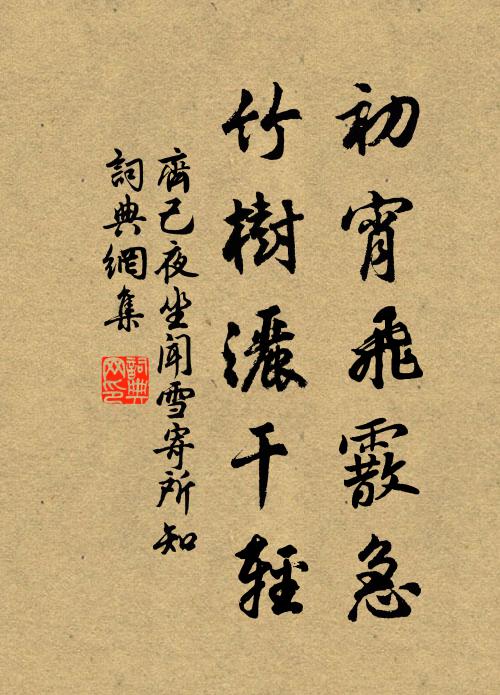 初宵飛霰急
竹樹灑干輕
齊己夜坐聞雪寄所知
詞典網集
詞典
网印